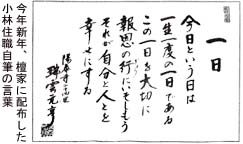 一日
今日という日は
一生一度の一日である
この一日を大切に
報恩の行にいそしもう
それが自分と人とを
幸せにする
今年新年、檀家に配布した
小林住職自筆の言葉